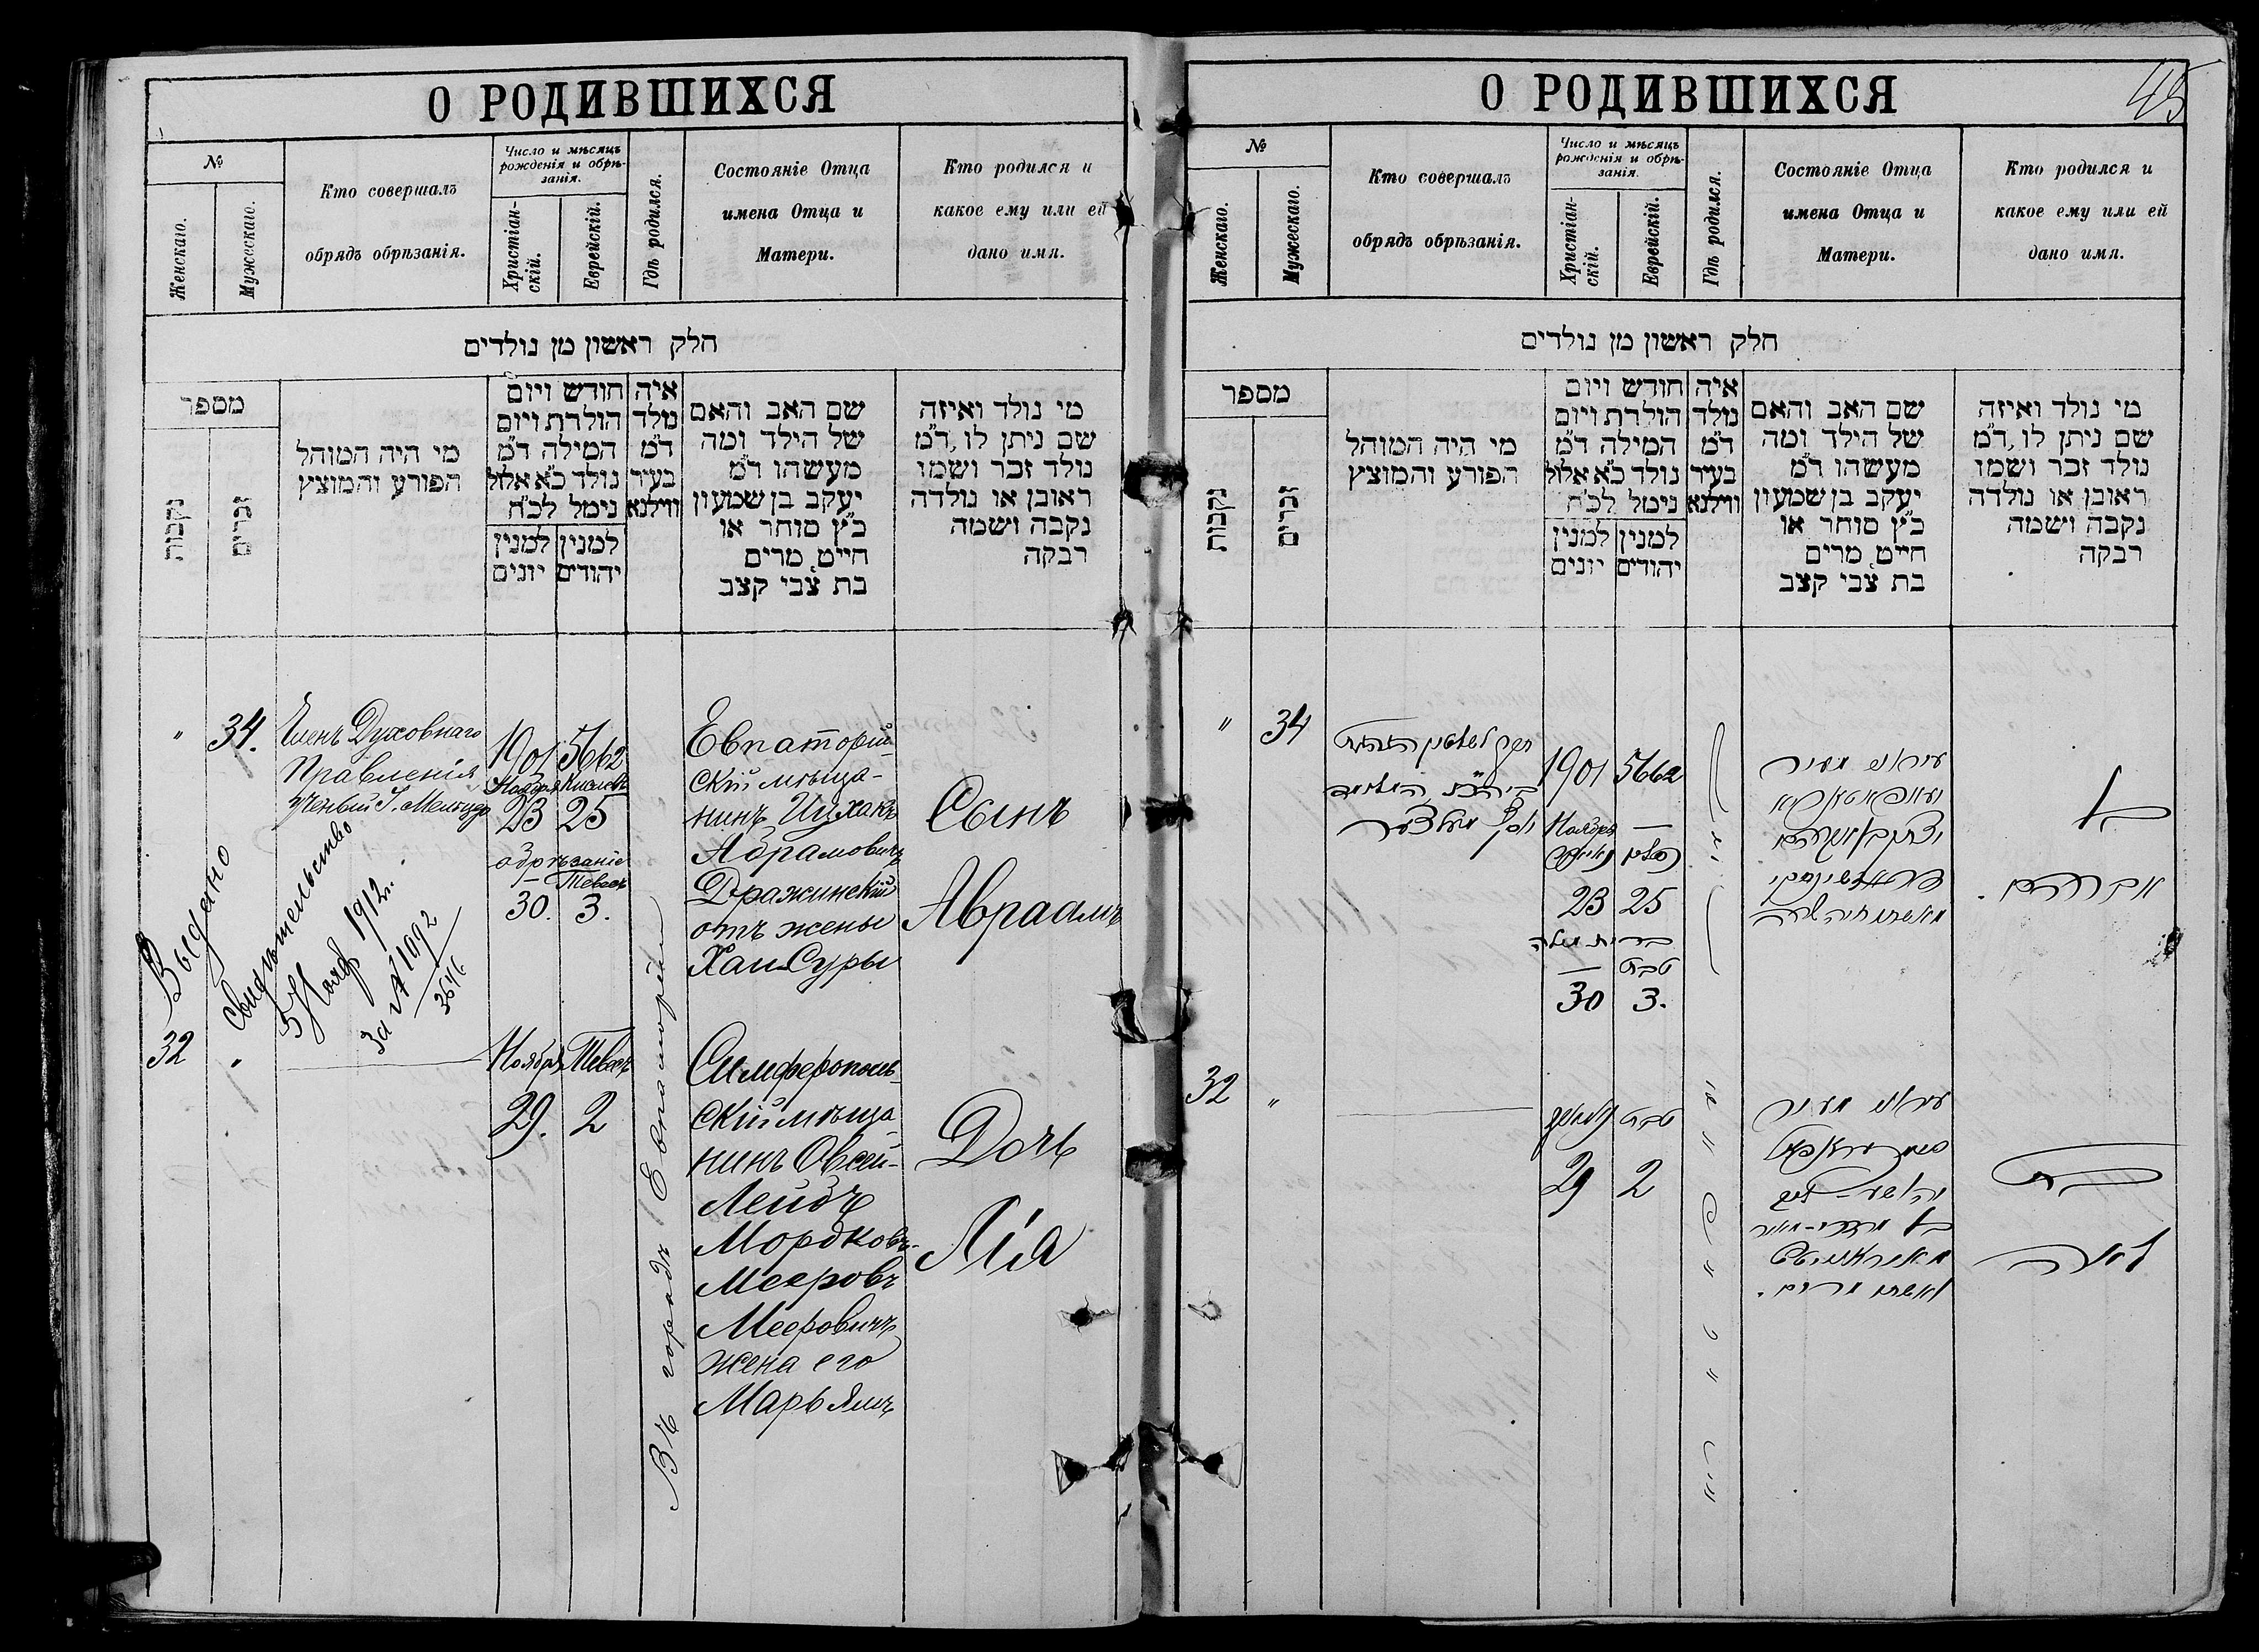 О РОДИВШИХСЯ
№
Женскаго.
Мужескаго.
Кто совершалъ
обрядъ обрѣзанія.
Число и мѣсяцъ
рожденія и обрѣ-
занія.
Христіан-
скій.
Еврейскій.
Гдѣ родился.
Состояніе Отца
имена Отца и
Матери.
Кто родился и
какое ему или ей
дано имя.
חלק ראשון מן נולדים
מספר
נקבות
זכרים
מי היה המוהל
הפורע והמוצץ
חודש ויום
הולדת ויום
המילה ד״מ
נולד כ״א אלול
נימל לכ״ח
למנין
יהודים
למנין
יונים
איה
נולד
ד״מ
בעיר
ווילנא
שם האב והאם
של הילד ומה
מעשהו ד״מ
יעקב בן שמעון
כ״ץ סוחר או
חייט, מרים
בת צבי קצב
מי נולד ואיזה
שם ניתן לו, ד״מ
נולד זכר ושמו
ראובן או נולדה
נקבה ושמה
רבקה
" 34.
Членъ Духовнаго
Правленія
ученый І. Мельцеръ
1901 5662
Ноября Кислевъ
23 25
обрѣзаніе
— Тевесъ
30. 3.
Въ городѣ Евпаторіи
Евпаторій-
скій мѣща-
нинъ Ицхакъ
Абрамовичъ
Дражинскій
отъ жены
Хаи-Суры
Сынъ
Авраамъ
Выдано
свидѣтельство
5 Нояб 1912 г.
за № 1092
3646
32 "
Ноября Тевесъ
29. 2
Симферополь-
скій мѣща
нинъ Овсей-
Лейбъ
Мордковъ-
Мееровъ
Мееровичъ
жена его
Марьямъ
Дочь
Лія
45
О РОДИВШИХСЯ
№
Женскаго.
Мужескаго.
Кто совершалъ
обрядъ обрѣзанія.
Число и мѣсяцъ
рожденія и обрѣ-
занія.
Христіан-
скій.
Еврейскій.
Гдѣ родился.
Состояніе Отца
имена Отца и
Матери.
Кто родился и
какое ему или ей
дано имя.
חלק ראשון מן נולדים
מספר
נקבות
זכרים
מי היה המוהל
הפורע והמוצץ
חודש ויום
הולדת ויום
המילה ד״מ
נולד כ״א אלול
נימל לכ״ח
למנין
יהודים
למנין
יונים
איה
נולד
ד״מ
בעיר
ווילנא
שם האב והאם
של הילד ומה
מעשהו ד״מ
יעקב בן שמעון
כ״ץ סוחר או
חייט, מרים
בת צבי קצב
מי נולד ואיזה
שם ניתן לו, ד״מ
נולד זכר ושמו
ראובן או נולדה
נקבה ושמה
רבקה
" 34
1901 5662
Ноября —
23 25
ברית מילה
— טבת
30 3.
עיראני מעיר
יצחק בן אברהם
ואשתו חיה שרה
בן
אברהם.
32 "
טבת
29 2
עיראני מעיר
ואשתו מרים.
בת
לאה